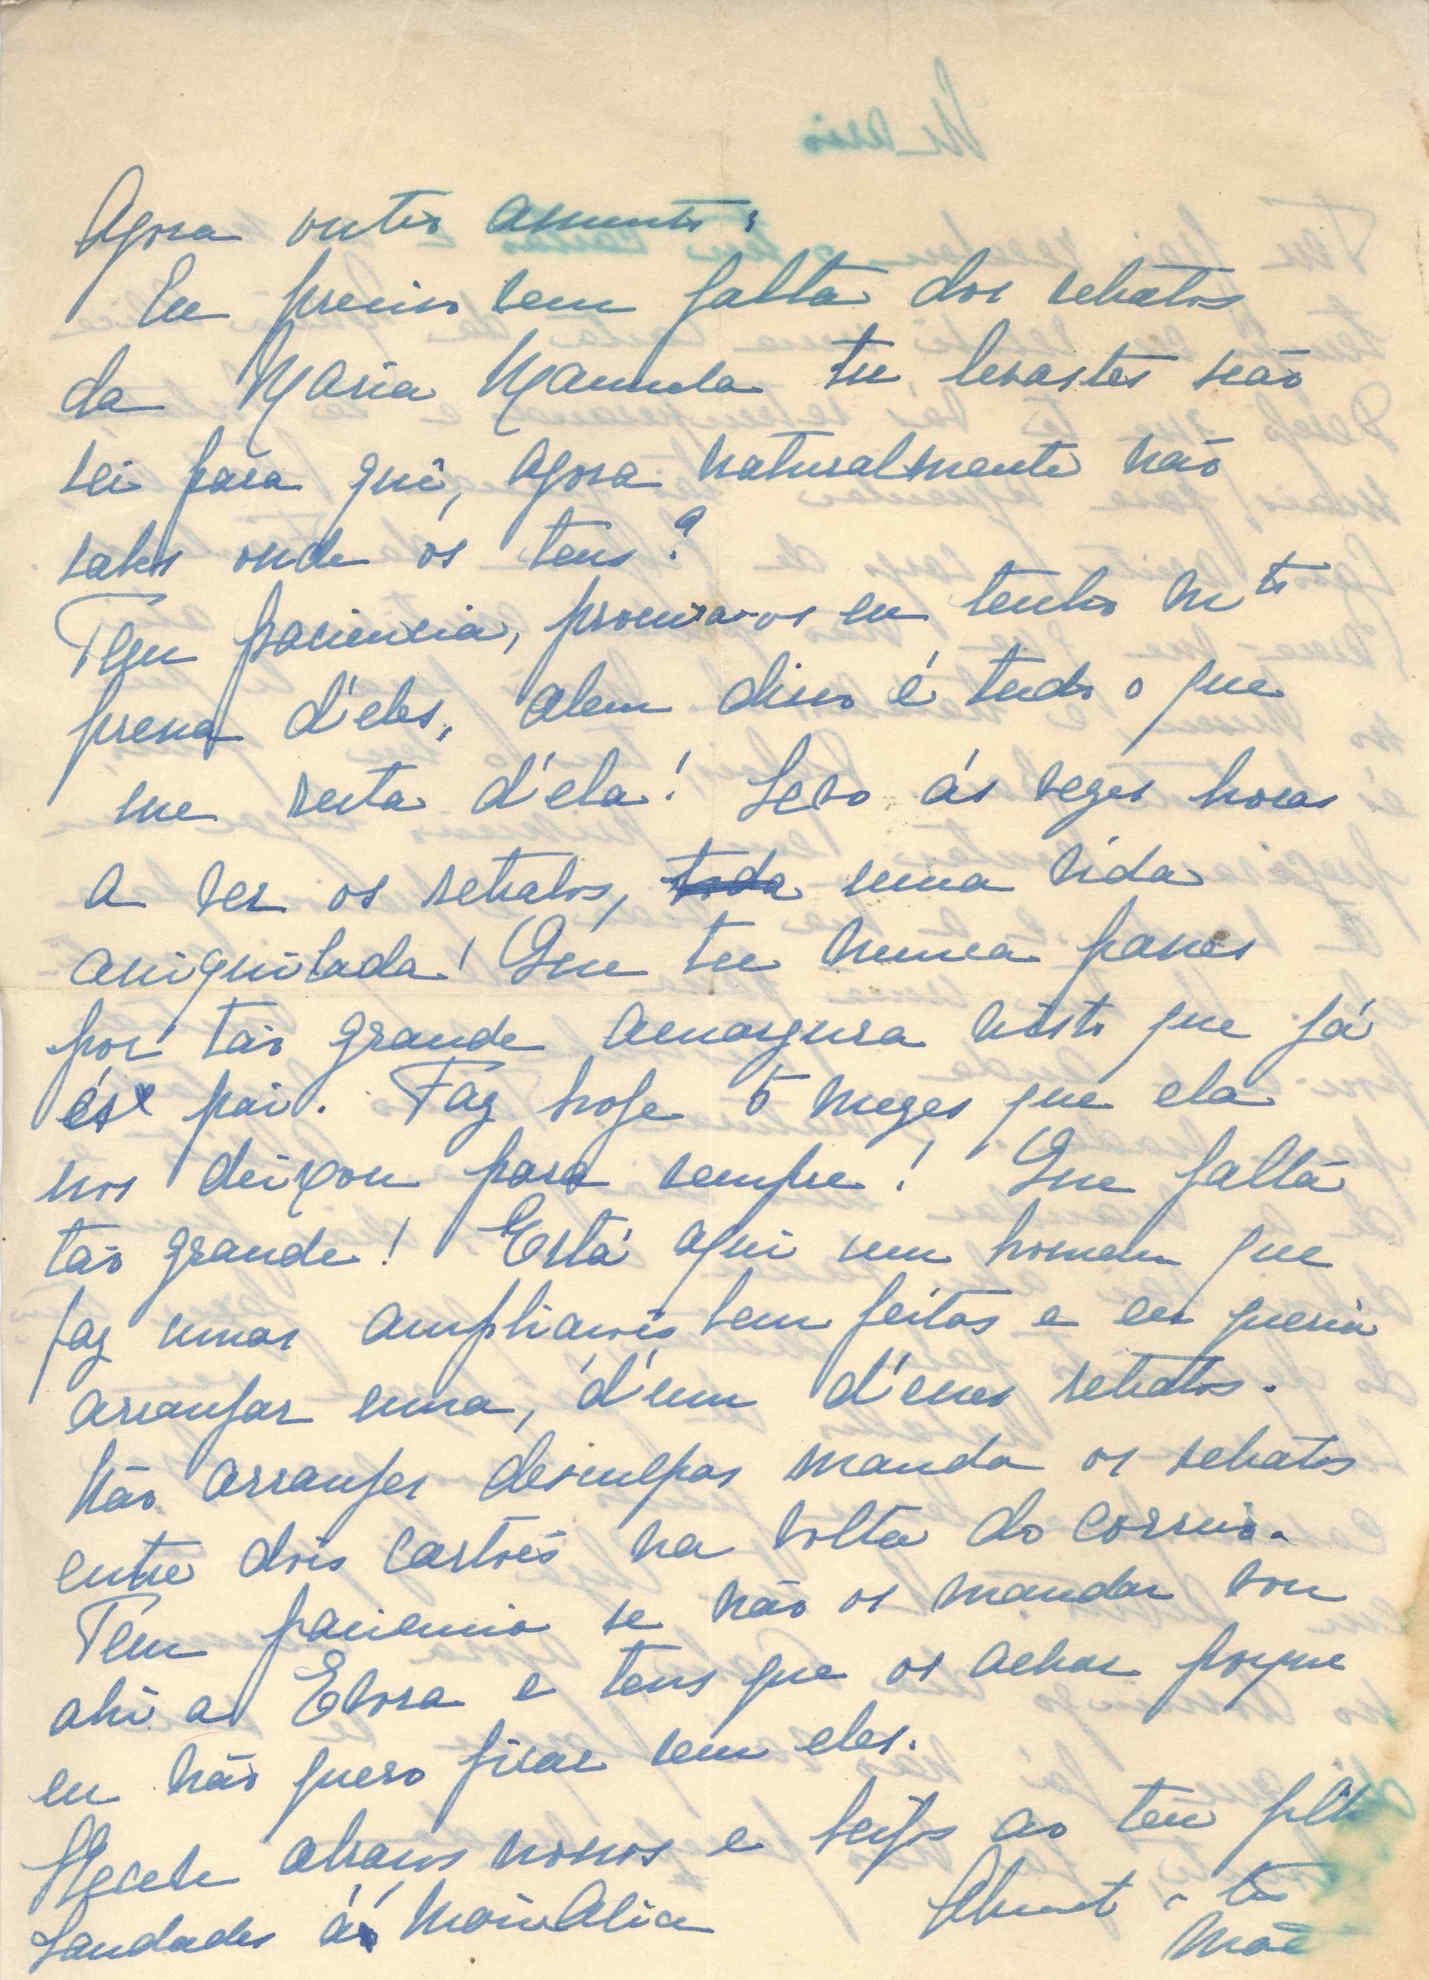 Agora outro assunto:
Eu preciso sem falta dos retratos
da Maria Manuela tu levastes não
sei para quê, agora naturalmente não
sabes onde os tens?
Tem paciencia, procura-os eu tenho mta
pena d'eles, alem disso é tudo o que
me resta d'ela! Levo ás vezes horas
a ver os retratos, toda uma vida
aniquilada! Que tu nunca passes
por tão grande amargura visto que já
és pai. Faz hoje 5 mezes que ela
nos deixou para sempre! Que falta
tão grande! Está aqui um homem que
faz umas ampliações bem feitas e eu queria
arranjar uma, d'um d'esses retratos.
Não arranjes desculpas manda os retratos
entre dois cartões na volta do correio.
Tem paciencia se não os mandar vou
ahi a Evora e tens que os achar porque
eu não quero ficar sem eles.
Recebe abraços nossos e beijos ao teu filho
Saudades á Maria Alice
Mãe